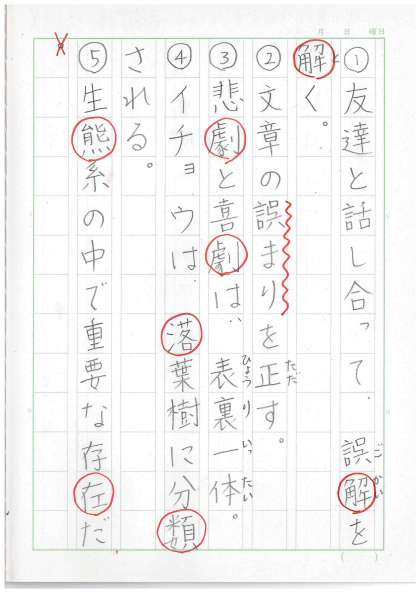 月 日 曜日
①友達と話し合って、誤解を
ごかい
解く。
と
②文章の誤まりを正す。
ただ
③悲劇と喜劇は、表裏一体。
ひょうり いったい
④イチョウは、落葉樹に分類
される。
⑤生熊系の中で重要な存在だ